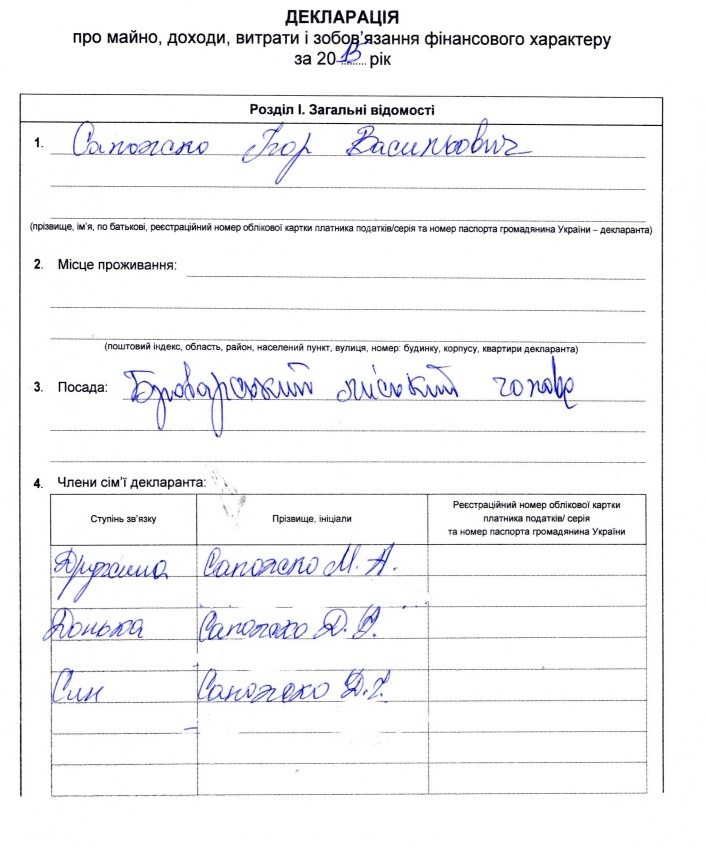 ДЕКЛАРАЦІЯ
про майно, доходи, витрати і зобов'язання фінансового характеру
за 2013 рік
Розділ І. Загальні відомості
1. Сапожко Ігор Васильович
(прізвище, ім'я, по батькові, реєстраційний номер облікової картки платника податків/серія та номер паспорта громадянина України – декларанта)
2. Місце проживання:
(поштовий індекс, область, район, населений пункт, вулиця, номер: будинку, корпусу, квартири декларанта)
3. Посада: Броварський міський голова
4. Члени сім'ї декларанта:
Ступінь зв'язку Прізвище, ініціали Реєстраційний номер облікової картки
платника податків/ серія
та номер паспорта громадянина України
Дружина Сапожко М. А.
Донька Сапожко Д. І.
Син Сапожко Д. І.